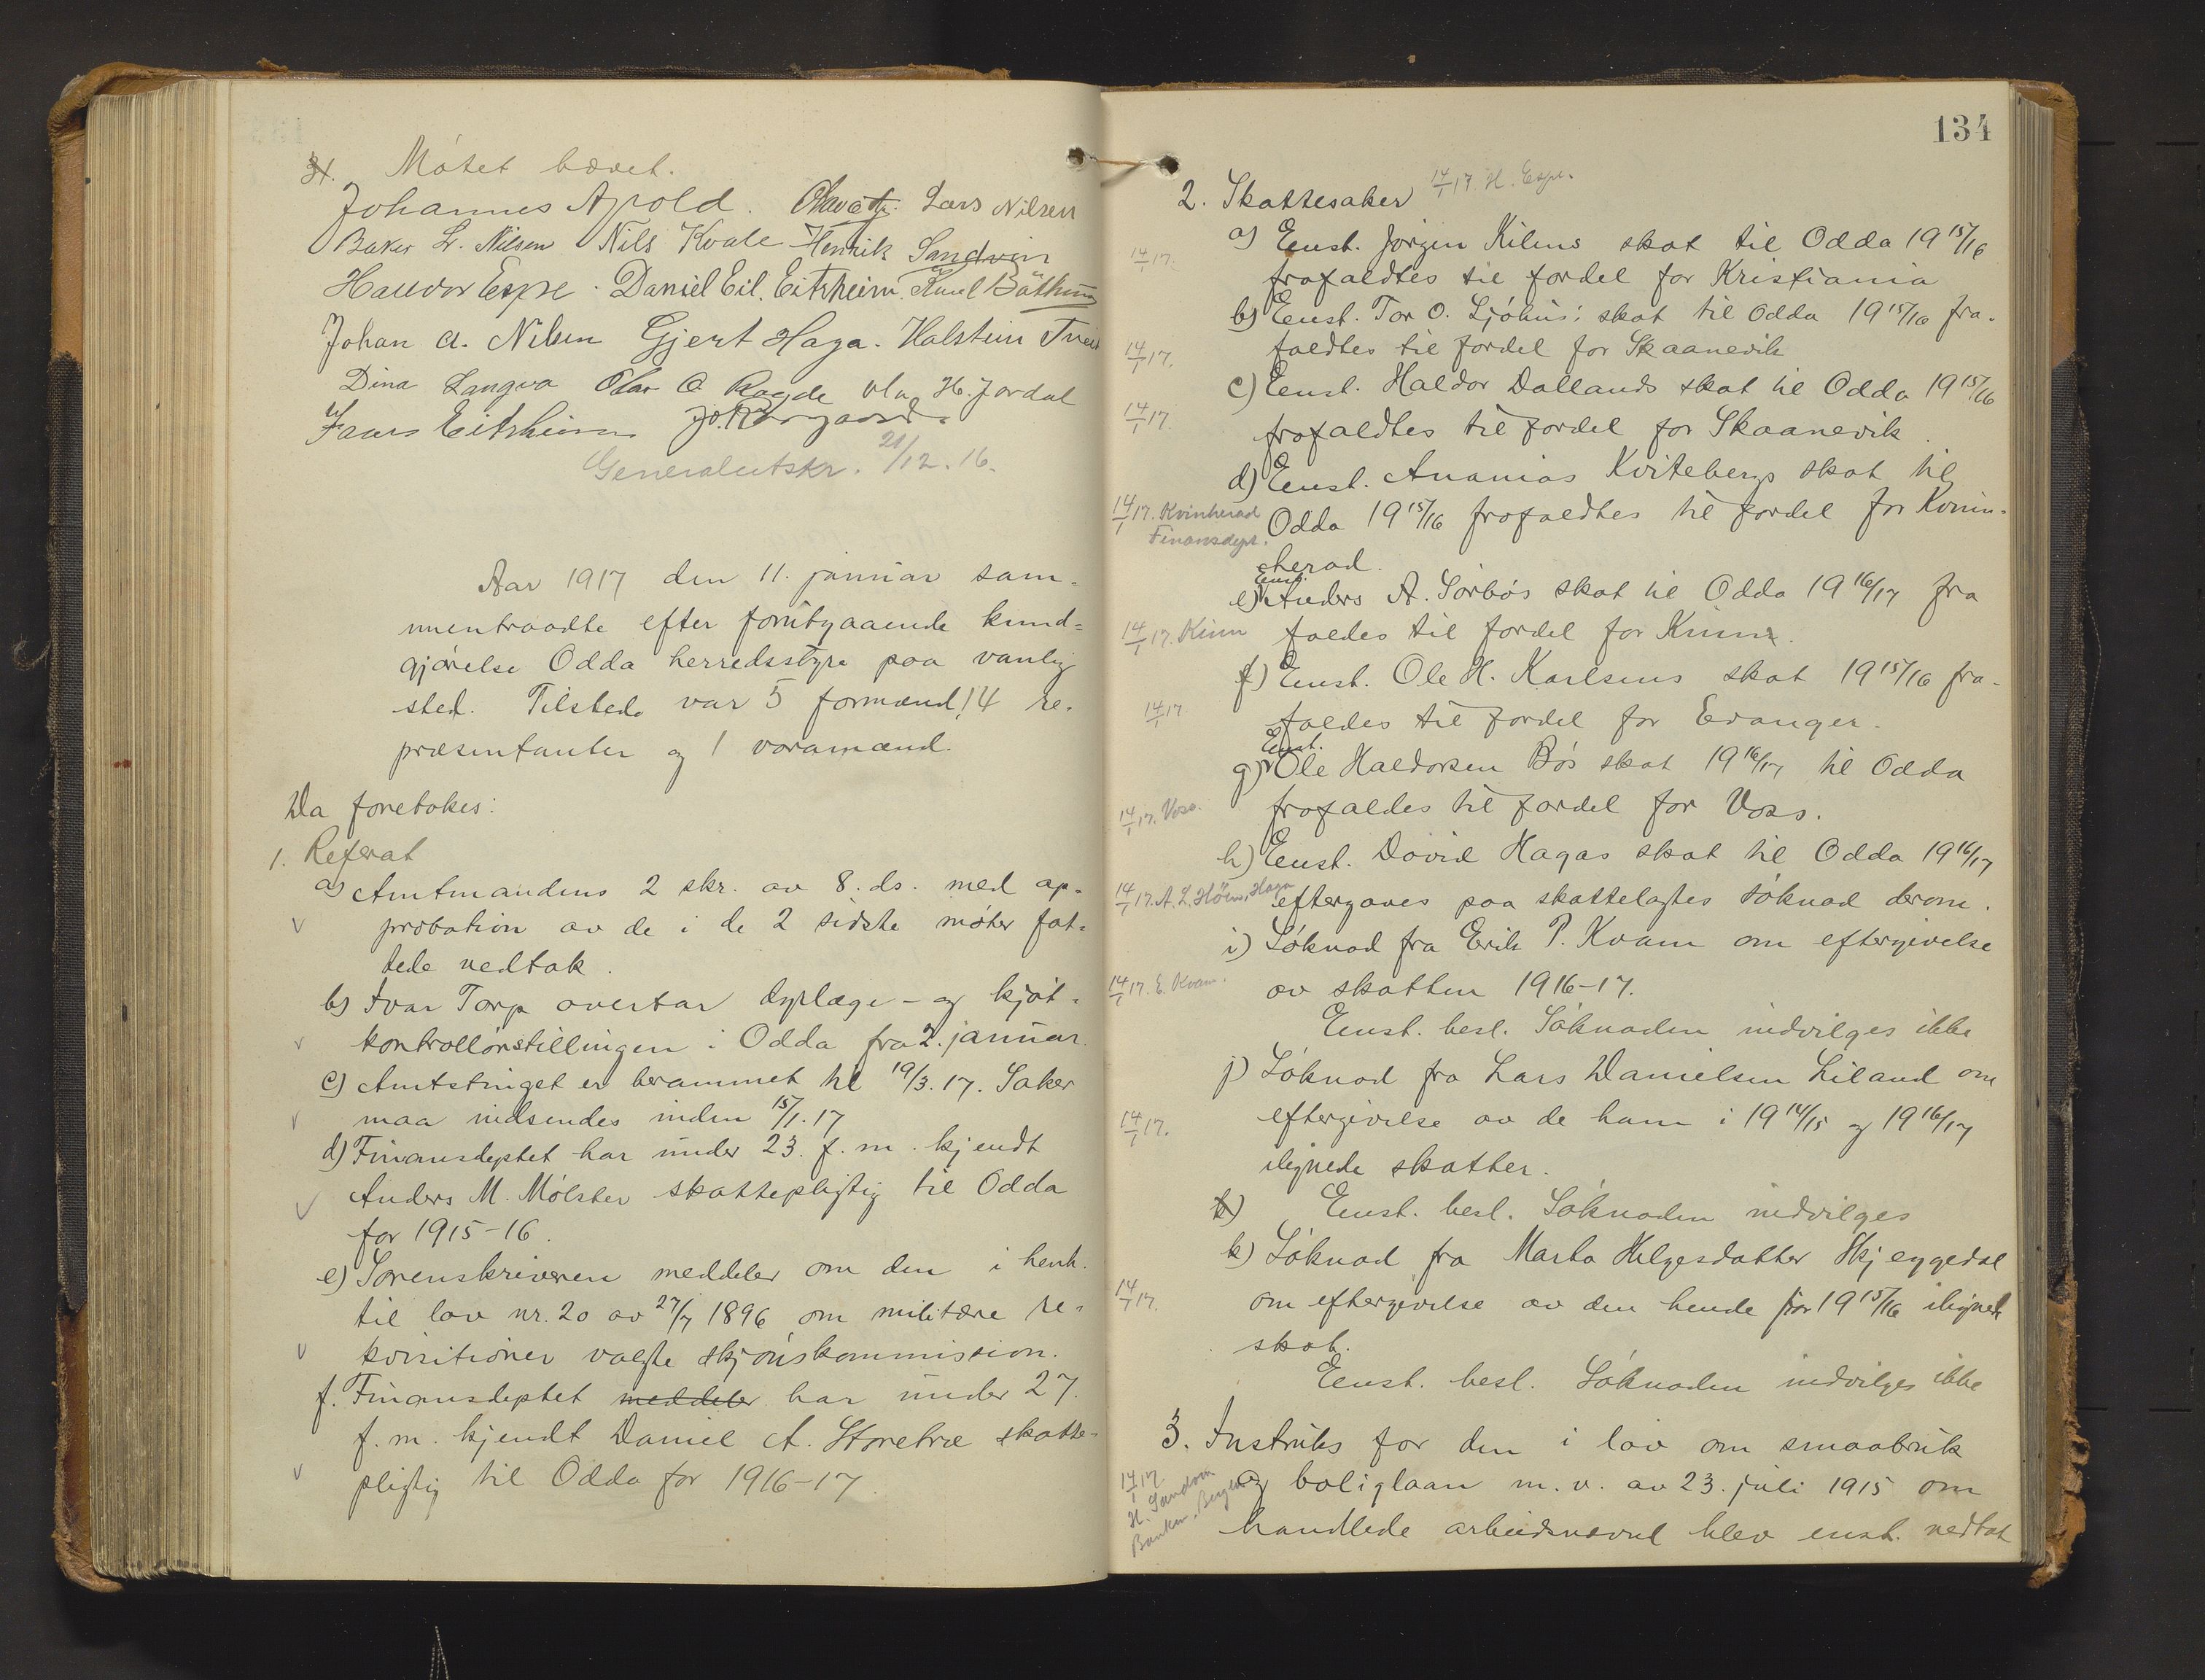 Møtet hævet.
Johannes Apold. Lars Nilsen
Baker L. Nilsen Nils Kvale Henrik Sandvin
Haldor Espe. Daniel Eil. Eitrheim. Knut Båthun
Johan A. Nilsen Gjert Haga. Halstein
Dina Langva Olav O Ragde Ola H. Jordal
Eitrheim
Generalutskr. 21/12.16.
Aar 1917 den 11. januar sam-
mentraadte efter forutgaaende kund-
gjørelse Odda herredsstyre paa vanlig
sted. Tilstede var 5 formænd, 14 re-
præsentanter og 1 varamænd.
Da foretokes:
1. Referat
a) Amtmandens 2 skr. av 8. ds. med ap-
probation av de i de 2 sidste møter fat-
tede vedtak.
b) Ivar Torp overtar dyrlæge- og kjøt-
kontrollørstillingen i Odda fra 2. januar.
c) Amtstinget er berammet til 19/3.17. Saker
maa indsendes inden 15/1.17
d) Finansdeptet har under 23. f. m. kjendt
Anders M. Mølster skattepligtig til Odda
for 1915-16.
e) Sorenskriveren meddeler om den i henh.
til lov nr. 20 av 27/7 1896 om militære re-
kvisitioner valgte skjønskommission.
f. Finansdeptet meddeler har under 27.
f. m. kjendt Daniel A. Storebræ skatte-
pligtig til Odda for 1916-17.
134
2. Skattesaker 14/1 17. H. Espe.
14/1 17. a) Enst. Jørgen Kilens skat til Odda 1915/16
frafaldtes til fordel for Kristiania
b) Enst. Tor O. Ljøhus: skat til Odda 1915/16 fra-
14/1 17. faldtes til fordel for Skaanevik
c) Enst. Haldor Dallands skat til Odda 1915/16
14/1 17. frafaldtes til fordel for Skaanevik.
d) Enst. Ananias Kvitebergs skat til
14/1 17. Kvinherad Finansdept. Odda 1915/16 frafaldtes til fordel for Kvin-
herad.
e) Enst. Anders A. Sørbøs skat til Odda 1916/17 fra
14/1 17. Kinn faldes til fordel for Kinn.
f) Enst. Ole H. Karlsens skat 1915/16 fra-
14/1 17. faldes til fordel for Evanger.
g) Enst. Ole Haldorsen Bøs skat 1916/17 til Odda
14/1 17. Voss. frafaldes til fordel for Voss.
h) Enst. David Hagas skat til Odda 1916/17
14/1 17. A. L. Haga eftergaves paa skattelagtes søknad derom.
i) Søknad fra Erik P. Kvam om eftergivelse
14/1 17. E. Kvam. av skatten 1916-17.
Enst. besl. Søknaden indvilges ikke
j) Søknad fra Lars Danielsen Liland om
14/1 17. eftergivelse av de ham i 1914/15 og 1916/17
ilignede skatter.
k) Enst. besl. Søknaden indvilges
k) Søknad fra Marta Helgesdatter Skjeggedal
14/1 17. om eftergivelse av den hende for 1915/16 ilignede
skat.
Enst. besl. Søknaden indvilges ikke
3. Instruks for den i lov om smaabruk
14/1 17 og boliglaan m. v. av 23. juli 1915 om
H. Sandvin Banken, Bergen handlede arbeidsnævnd blev enst. vedtat